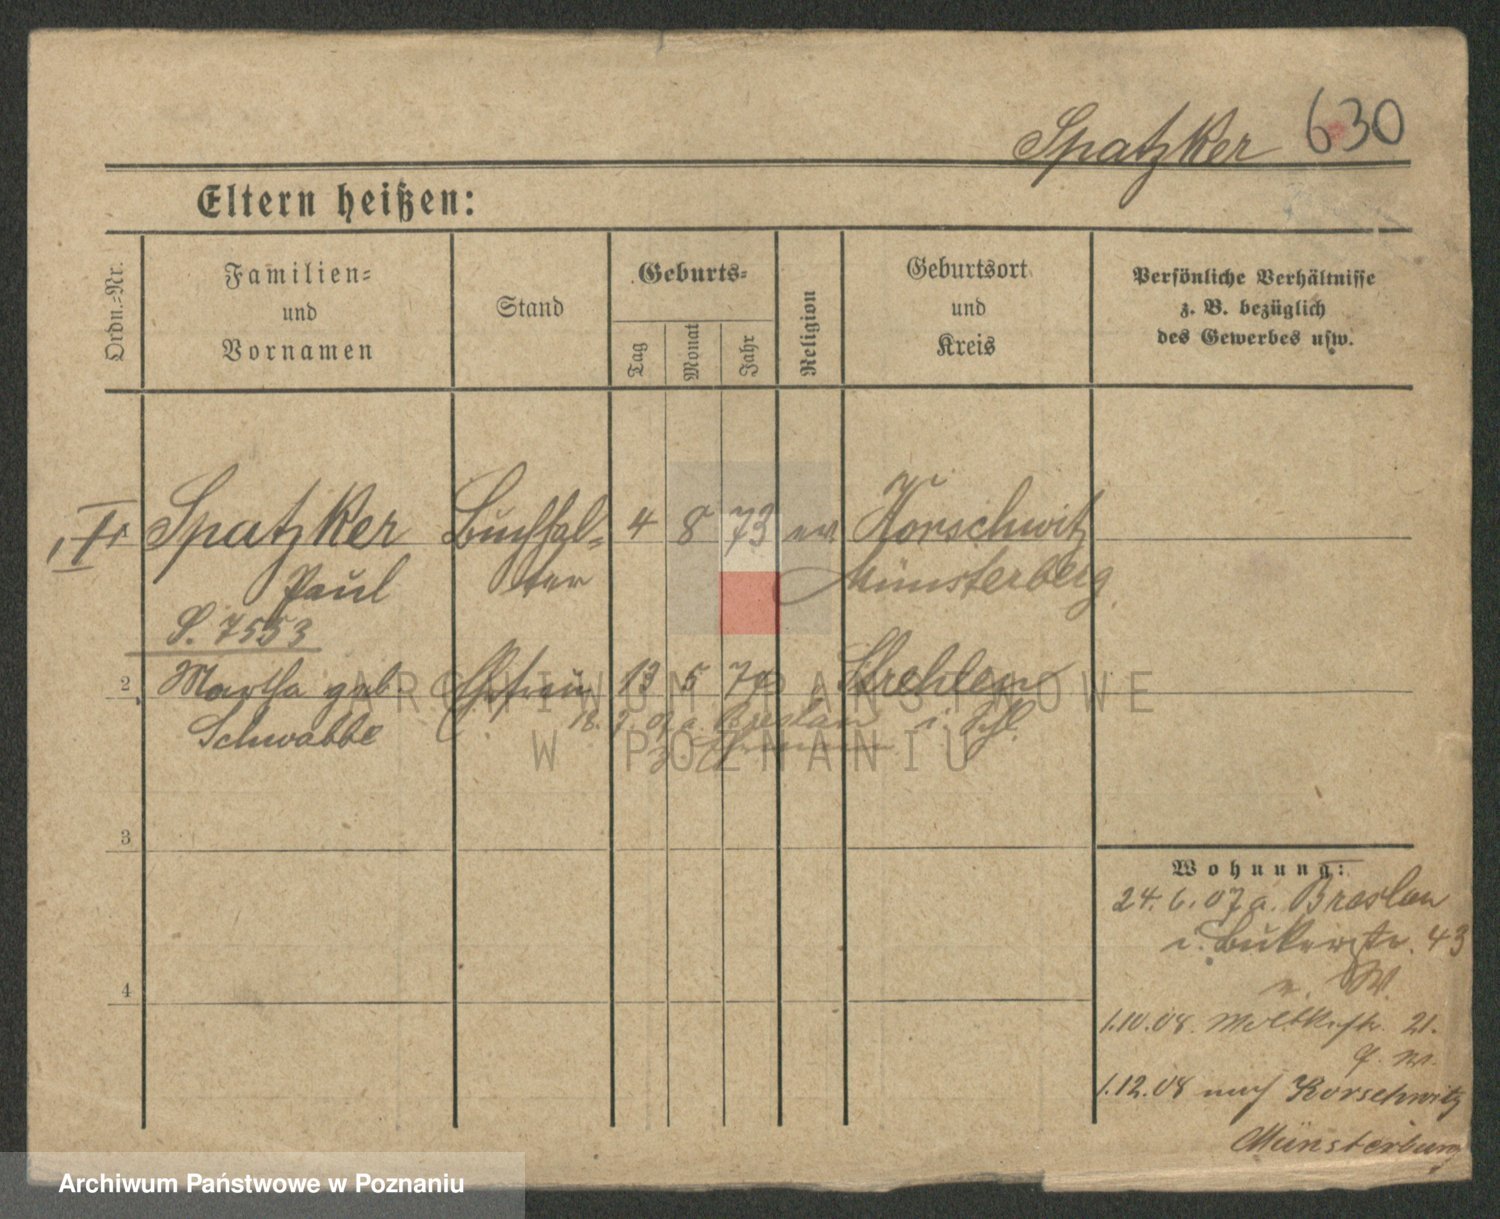 Spatzker 630
Eltern heißen:
Ordn.-Nr.
Familien-
und
Vornamen
Stand
Geburts-
Tag
Monat
Jahr
Religion
Geburtsort
und
Kreis
Persönliche Verhältnisse
z. B. bezüglich
des Gewerbes usw.
Spatzker Buchhal- 4 8 73 ev Korschwitz
Paul ter Münsterberg
S. 7553
2 Martha geb. Ehefrau 13 5 Strehlen
Schwabbe Breslau i. Schl.
3
4
Wohnung:
24. 6. 07 a. Breslau
i. Bukerstr. 43
1.10.08. Moltkestr. 21.
1.12.08 nach Korschwitz
Münsterberg
ARCHIWUM PAŃSTWOWE
W POZNANIU
Archiwum Państwowe w Poznaniu